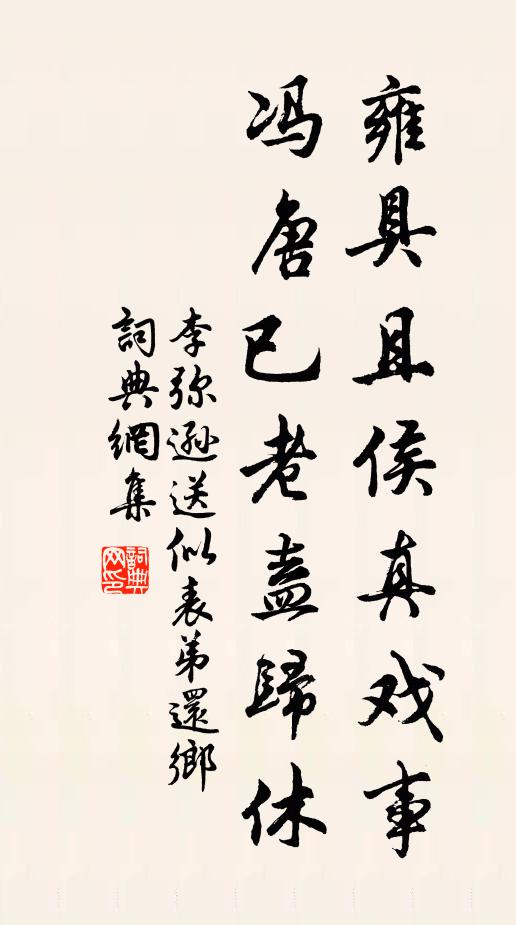 雍具且侯真戏事
冯唐已老盍歸休
李弥遜送似表弟還鄉
詞典網集
詞典网印